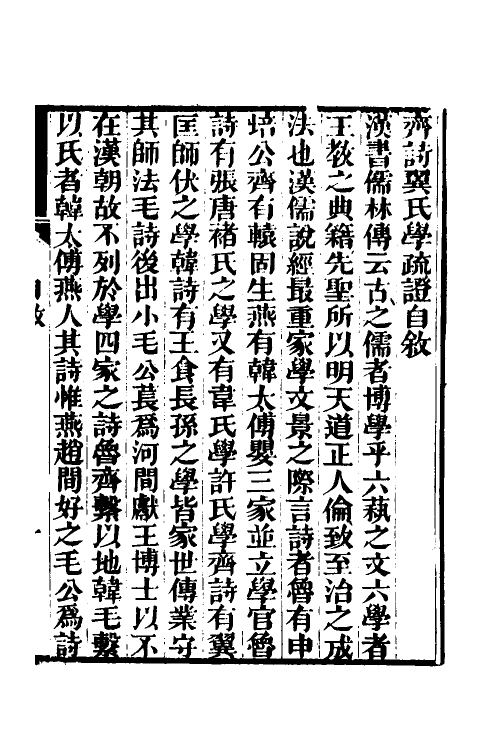 齊詩翼氏學疏證自敘
漢書儒林傳云古之儒者博學乎六蓺之文六學者
王敎之典籍先聖所以明天道正人倫致至治之成
法也漢儒說經最重家學文景之際言詩者魯有申
培公齊有轅固生燕有韓太傅嬰三家並立學官魯
詩有張唐褚氏之學又有韋氏學許氏學齊詩有翼
匡師伏之學韓詩有王食長孫之學皆家世傳業守
其師法毛詩後出小毛公萇爲河間獻王博士以不
在漢朝故不列於學四家之詩魯齊繫以地韓毛繫
以氏者韓太傅燕人其詩惟燕趙間好之毛公爲詩
自敘
一